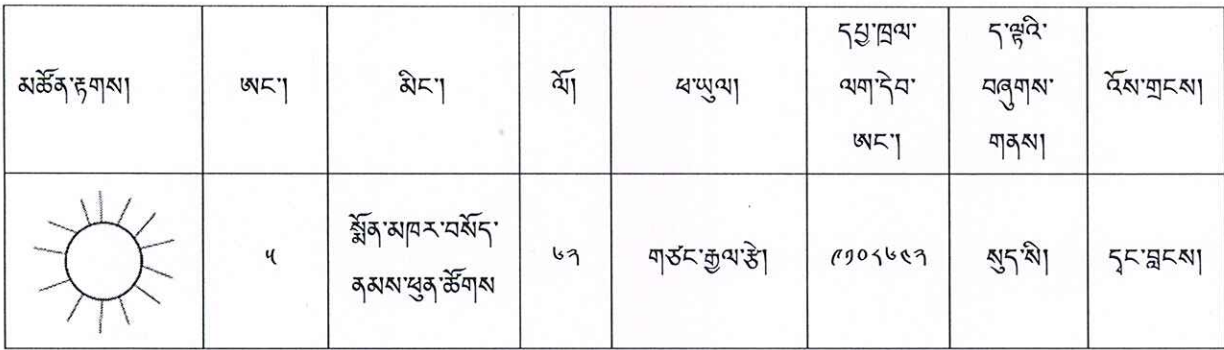 མཚོན་རྟགས།
ཨང་།
མིང་།
ལོ།
ཕ་ཡུལ།
དཔྱ་ཁྲལ་
ལག་དེབ་
ཨང་།
ད་ལྟའི་
བཞུགས་
གནས།
འོས་གྲངས།
༥
སྨོན་མཁར་བསོད་
ནམས་ཕུན་ཚོགས
༦༢
གཙང་རྒྱལ་རྩེ།
སུད་སི།
དྭང་བླངས།